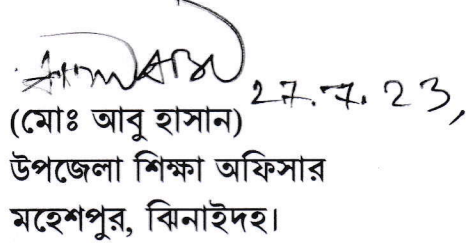 27.7.23,
(মোঃ আবু হাসান)
উপজেলা শিক্ষা অফিসার
মহেশপুর, ঝিনাইদহ।